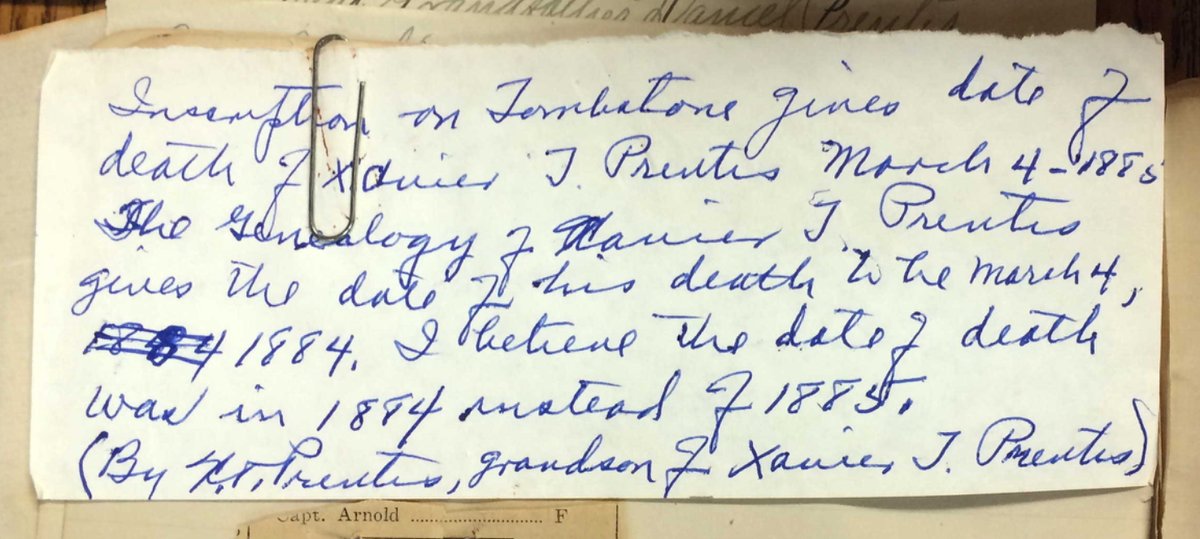 Grandfather Daniel Prentis
Inscription on Tombstone gives date of
death of Xavier J. Prentis March 4-1885
The Genealogy of Xavier J. Prentis
gives the date of his death to be March 4,
1884 1884. I believe the date of death
was in 1884 instead of 1885.
(By Prentis, grandson of Xavier J. Prentis)
Capt. Arnold .............................. F